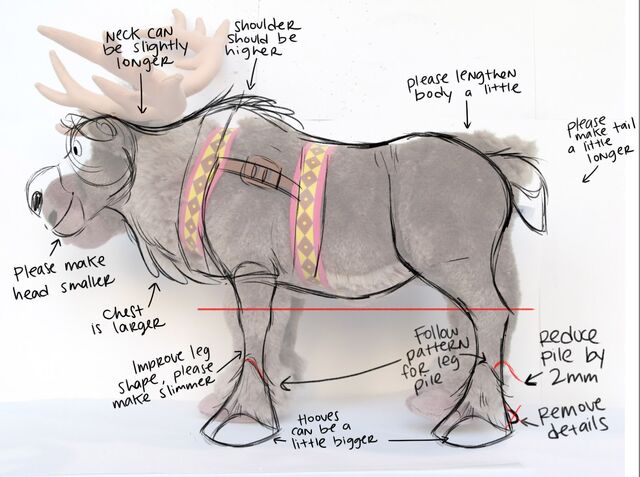 Neck can
be slightly
longer
shoulder
should be
higher
please lengthen
body a little
please
make tail
a little
longer
Please make
head smaller
chest
is larger
Improve leg
shape, please
make slimmer
Follow
pattern
for leg
pile
Reduce
pile by
2mm
Remove
details
Hooves
can be a
little bigger